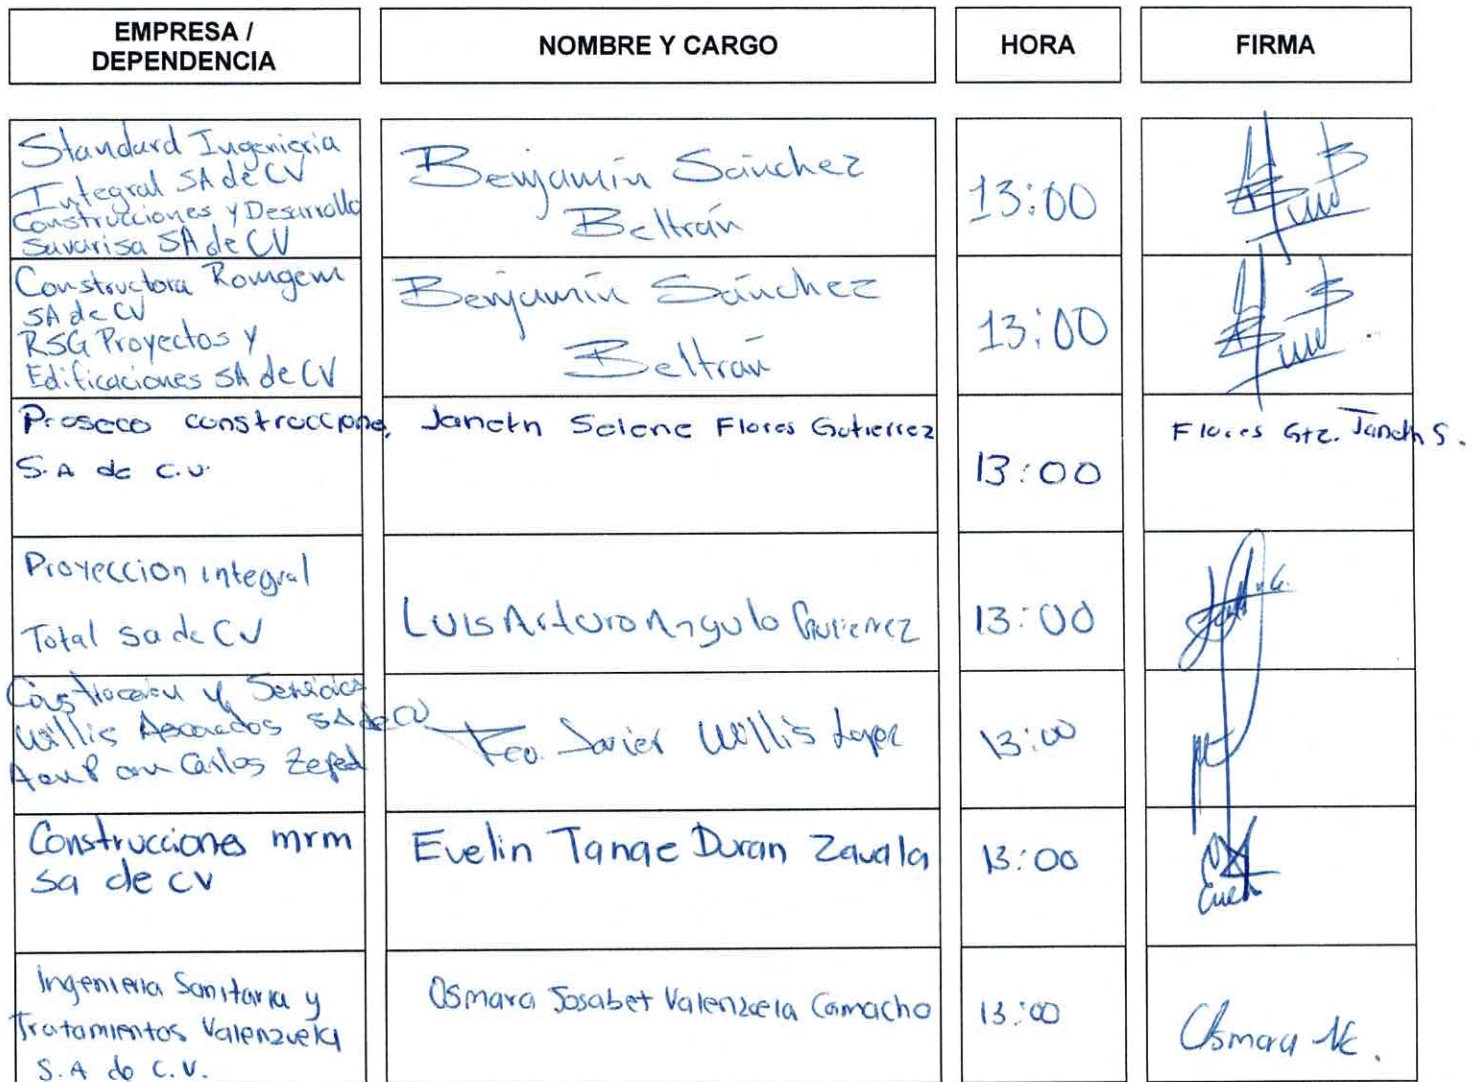 EMPRESA /
DEPENDENCIA
NOMBRE Y CARGO
HORA
FIRMA
Standard Ingenieria
Integral SA de CV
Construcciones y Desarrollo
Savarisa SA de CV
Benjamín Sánchez
Beltrán
13:00
Constructora Romgem
SA de CV
RSG Proyectos y
Edificaciones SA de CV
Benjamín Sánchez
Beltrán
13:00
Proseco construccione,
S.A de C.V.
Janeth Selene Flores Gutierrez
13:00
Flores Gtz. Janeth S.
Proyeccion integral
Total sa de CV
Luis Arturo Angulo Gutierrez
13:00
Construccion y Servicios
Willis Asociados SA de CV
Carlos Zeped
Fco. Javier Willis Lopez
13:00
Construcciones mrm
sa de cv
Evelin Tanae Duran Zavala
13:00
Evel
Ingenieria Sanitaria y
Tratamientos Valenzuela
S.A de C.V.
Osmara Josabet Valenzuela Camacho
13:00
Osmara Vc.